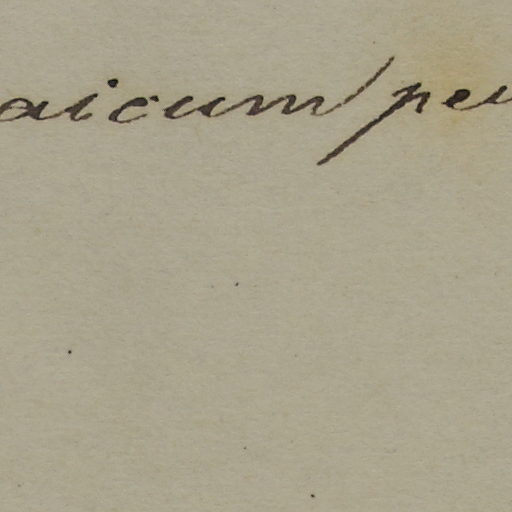 aicum pen